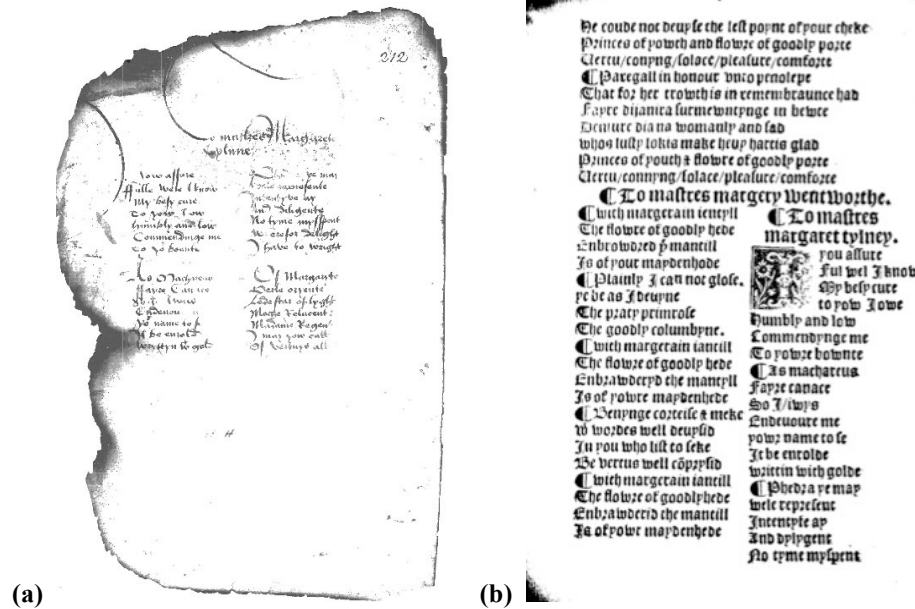 212
mastres Margaret
Tylnne
I yow assure
Fulle well I know
My besy cure
To yow I ow
Humbly and low
Commendinge me
To yor bounte
As Machareus
Fayre Canace
So I
Endevou
Yor name to
It be enrold
Writtyn w gol
Phedra ye may
Wele represente
Intentyve ay
And diligente
No tyme myspent
Wherfor delight
I have to wright
Of Margarite
Perle oryente
Lodestar of lyght
Moche Relucent
Madame Regent
I may yow call
Of vertuys all
(a)
He coude not deuyse the lest poynt of your cheke
Princes of yowth and flowre of goodly porte
Uertu/conyng/solace/pleasure/comforte
¶Paregall in honour vnto penolepe
That for her trowth is in remembraunce had
Fayre dijanira surmewntynge in bewte
Demure diana womanly and sad
whos lusty lokis make heuy hartis glad
Princes of youth & flowre of goodly porte
Uertu/connyng/solace/pleasure/comforte
¶To mastres margery wentworthe.
¶with margerain ientyll
The flowre of goodly hede
Enbrowdred þe mantill
Is of your maydenhode
¶Plainly I can not glose.
ye be as I deuyne
The praty primrose
The goodly columbyne.
¶with margerain iantill
The flowre of goodly hede
Enbrawderyd the mantyll
Is of yowre maydenhede
¶Benynge corteise & meke
w wordes well deuysid
In you who list to seke
Be vertus well cõprysid
¶with margerain iantill
The flowre of goodlyhede
Enbrawderid the mantill
Is of yowr maydenhede
¶To mastres
margaret tylney.
I you assure
Ful wel I know
My besy cure
to yow I owe
Humbly and low
Commendynge me
To yowre bownte
¶As machareus
Fayre canace
So I/iwys
Endeuoure me
yowr name to se
It be enrolde
writtin with golde
¶Phedra ye may
wele represent
Intentyfe ay
And dylygent
No tyme myspent
(b)